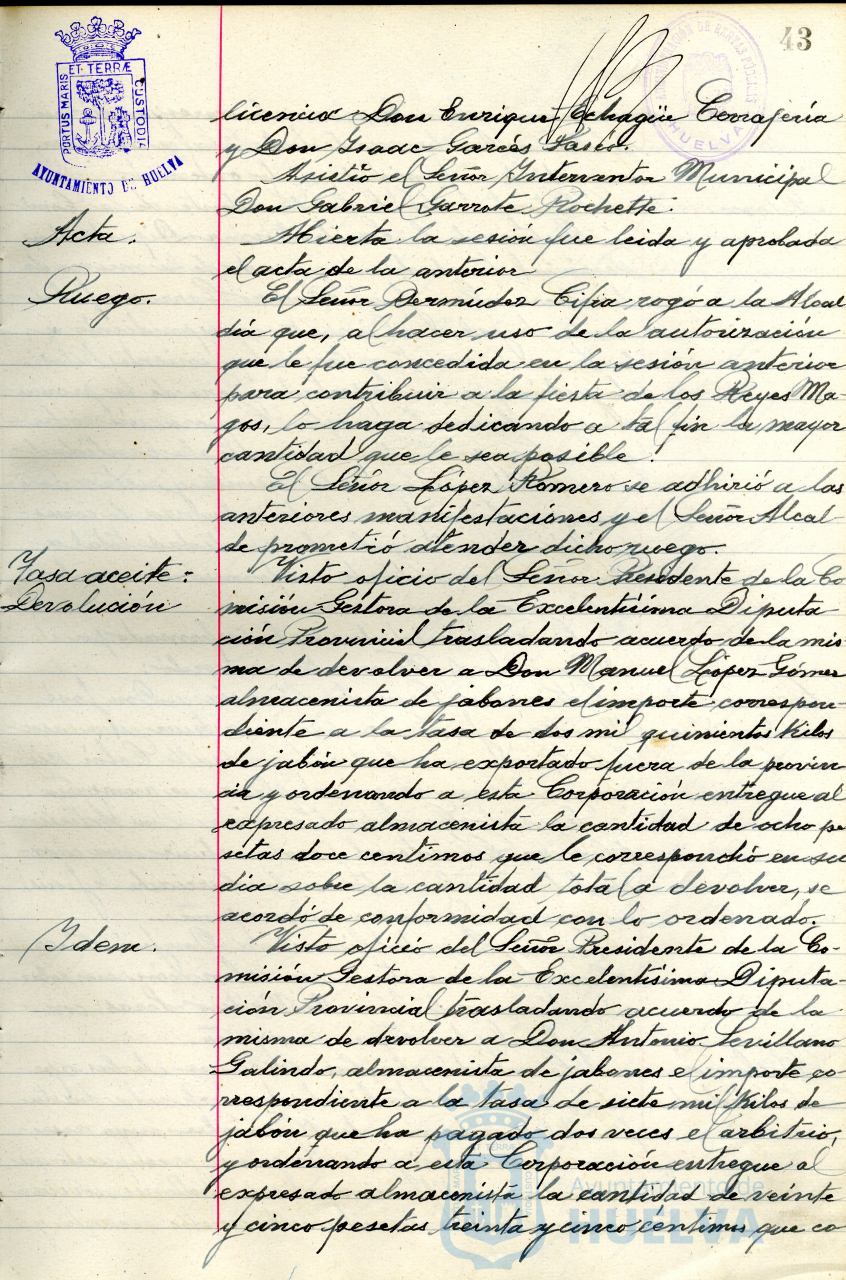 43
ET TERRÆ
PORTUS MARIS
CUSTODIA
AYUNTAMIENTO DE HUELVA
HUELVA
licencia Don Enrique Echagüe Cerrajería
y Don Isaac Garcés
Asistió el Señor Interventor Municipal
Don Gabriel Garrote Rochette.
Acta.
Abierta la sesión fue leida y aprobada
el acta de la anterior
Ruego.
El Señor Bermúdez Cifia rogó a la Alcal
día que, al hacer uso de la autorización
que le fue concedida en la sesión anterior
para contribuir a la fiesta de los Reyes Ma-
gos, lo haga dedicando a tal fin la mayor
cantidad que le sea posible.
El Señor López Romero se adhirió a las
anteriores manifestaciones y el Señor Alcal-
de prometió atender dicho ruego.
Tasa aceite:
Devolución
Visto oficio del Señor Presidente de la Co
misión Gestora de la Excelentísima Diputa
ción Provincial trasladando acuerdo de la mis
ma de devolver a Don Manuel López Gómez
almacenista de jabones el importe correspon-
diente a la tasa de dos mil quinientos kilos
de jabón que ha exportado fuera de la provin
cia y ordenando a esta Corporación entregue al
expresado almacenista la cantidad de ocho pe
setas doce centimos que le correspondió en su
dia sobre la cantidad total a devolver, se
acordó de conformidad con lo ordenado.
Idem.
Visto oficio del Señor Presidente de la Co-
misión Gestora de la Excelentísima Diputa-
ción Provincial trasladando acuerdo de la
misma de devolver a Don Antonio Sevillano
Galindo, almacenista de jabones el importe co-
rrespondiente a la tasa de siete mil kilos de
jabón que ha pagado dos veces el arbitrio,
y ordenando a esta Corporación entregue al
expresado almacenista la cantidad de veinte
y cinco pesetas treinta y cinco céntimos que co
Ayuntamiento de
HUELVA